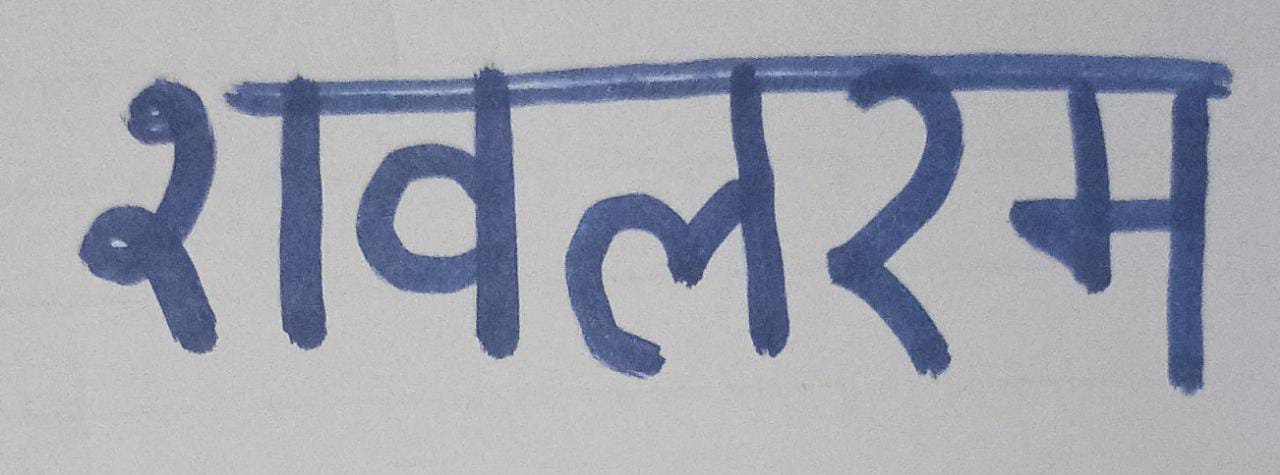 शवलरम